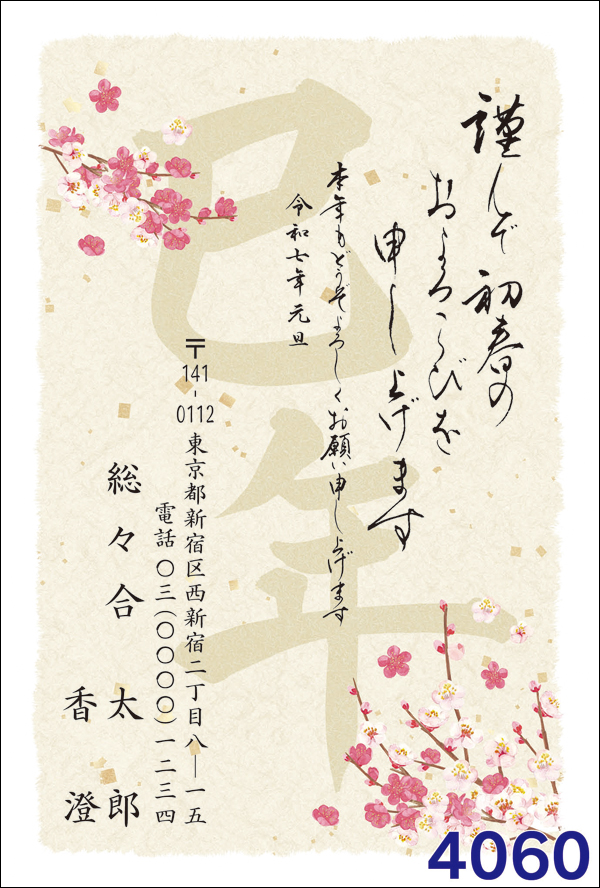 謹んで初春の
およろこびを
申し上げます
本年もどうぞよろしくお願い申し上げます
令和七年元旦
〒141-0112
東京都新宿区西新宿二丁目八—一五
電話〇三(〇〇〇〇)一二三四
総々合太郎
香澄
巳年
4060